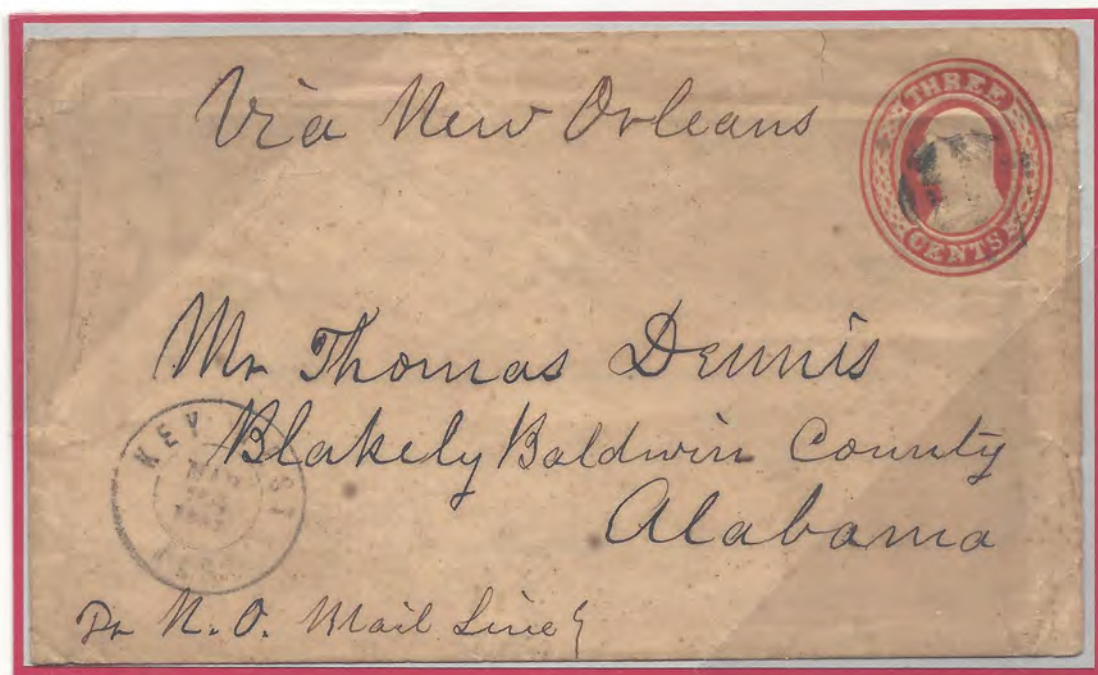 Via New Orleans
THREE
CENTS
Mr Thomas Dennis
Blakely Baldwin County
Alabama
KEY
Pr N. O. Mail Line